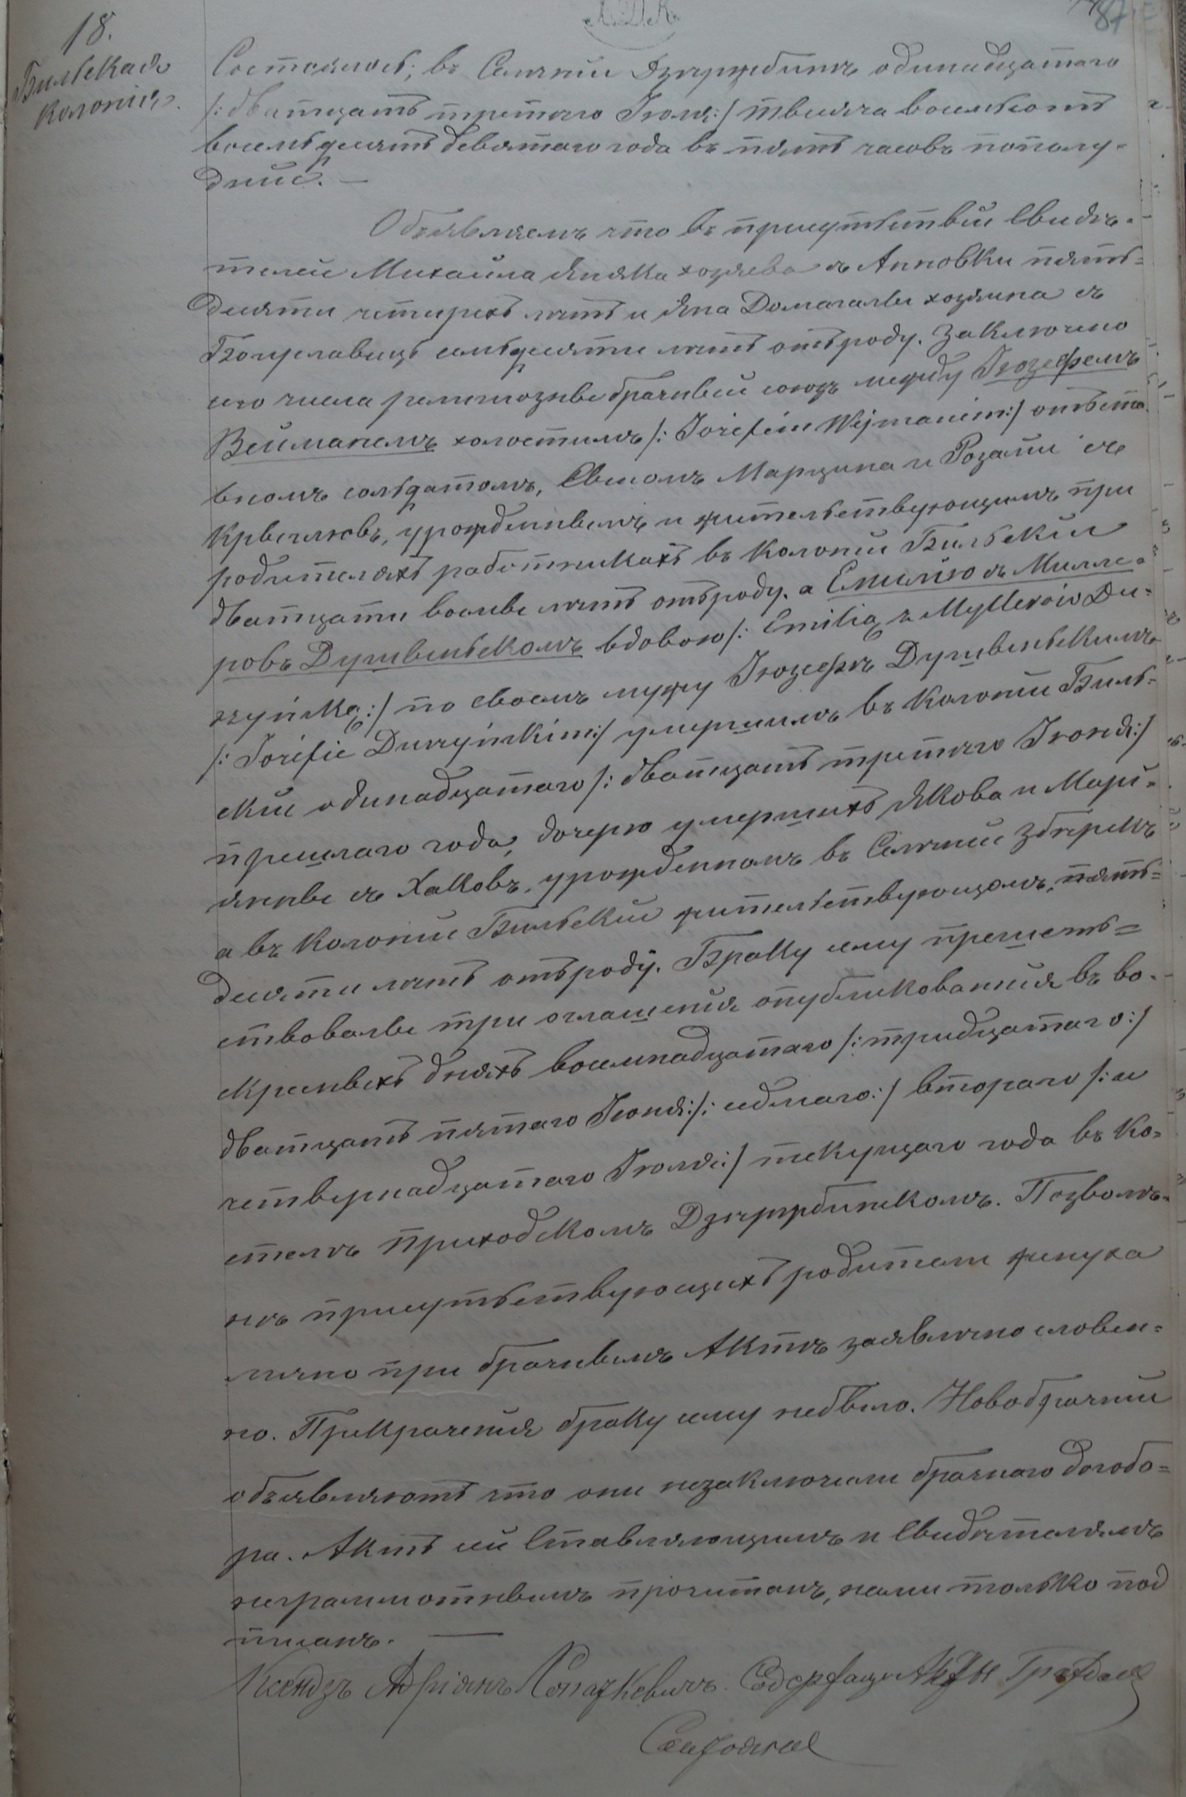 18.
Бильская
колонiя.
87
Состоялось; въ Селенiи Дзержбинъ одинадцатаго
/: дватцать третяго Iюля:/ тысяча восемьсотъ
восемьдесятъ девятаго года въ пять часовъ пополу-
днии. —
Объявляемъ что въ присутствiи свидѣ-
телей Михаила Яняка хозяева съ Анновки пять-
десяти четырехъ лѣтъ и Яна Домагалы хозяина съ
Болеславецъ семьдесяти лѣтъ отъроду. Заключено
сего числа религiозны брачный союзъ между Iюзефемъ
Вейманемъ холостимъ /: Józefem Wejmanem:/ отъста-
вномъ солдатомъ, сыномъ Марцина и Розалiи съ
урожденнымъ и жительствующимъ при
родителяхъ работникахъ въ колонiи Бильскiи
дватцати восемы лѣтъ отъроду. а Емилiю съ Милле-
ровъ Душвеньскомъ вдовою /: Emilia z Myllerów Du-
szyńską:/ по своемъ мужу Iюзефѣ Душвеньскимъ
/: Józefie Duszyńskim:/ умершимъ въ колонiи Биль-
скiи одинадцатаго /: дватцать третяго Iюня:/
прешлаго года, дочерю умершихъ Якова и Марi-
янны съ Хаковъ, урожденномъ въ Селенiи Збѣрскъ
а въ колонiи Бильскiи жительствующомъ, пять-
десяти лѣтъ отъроду. Браку сему прешеть-
ствовалы три оглашенiя опубликованнiя въ во-
скресныхъ дняхъ восемнадцатаго /: тридцатаго:/
дватцать пятаго Iюня:/: седмаго:/ втораго /: и
четвернадцатаго Iюля:/ текущаго года въ Ко-
стелѣ приходскомъ Дзержбинскомъ. Позволѣ-
нѣ присутьствующихъ родители жениха
лично при брачнымъ Актѣ заявлѣно словен-
но. Прикраченiя браку сему небыло. Новобрачнiи
объявляютъ что они незаключали брачнаго догово-
ра. Актъ сiи Ставляющимъ и Свидѣтелямъ
неграммотнымъ прочитанъ, нами только под
писанъ. —
Ксендзъ Адрiянъ Содержащи Акты Граждан